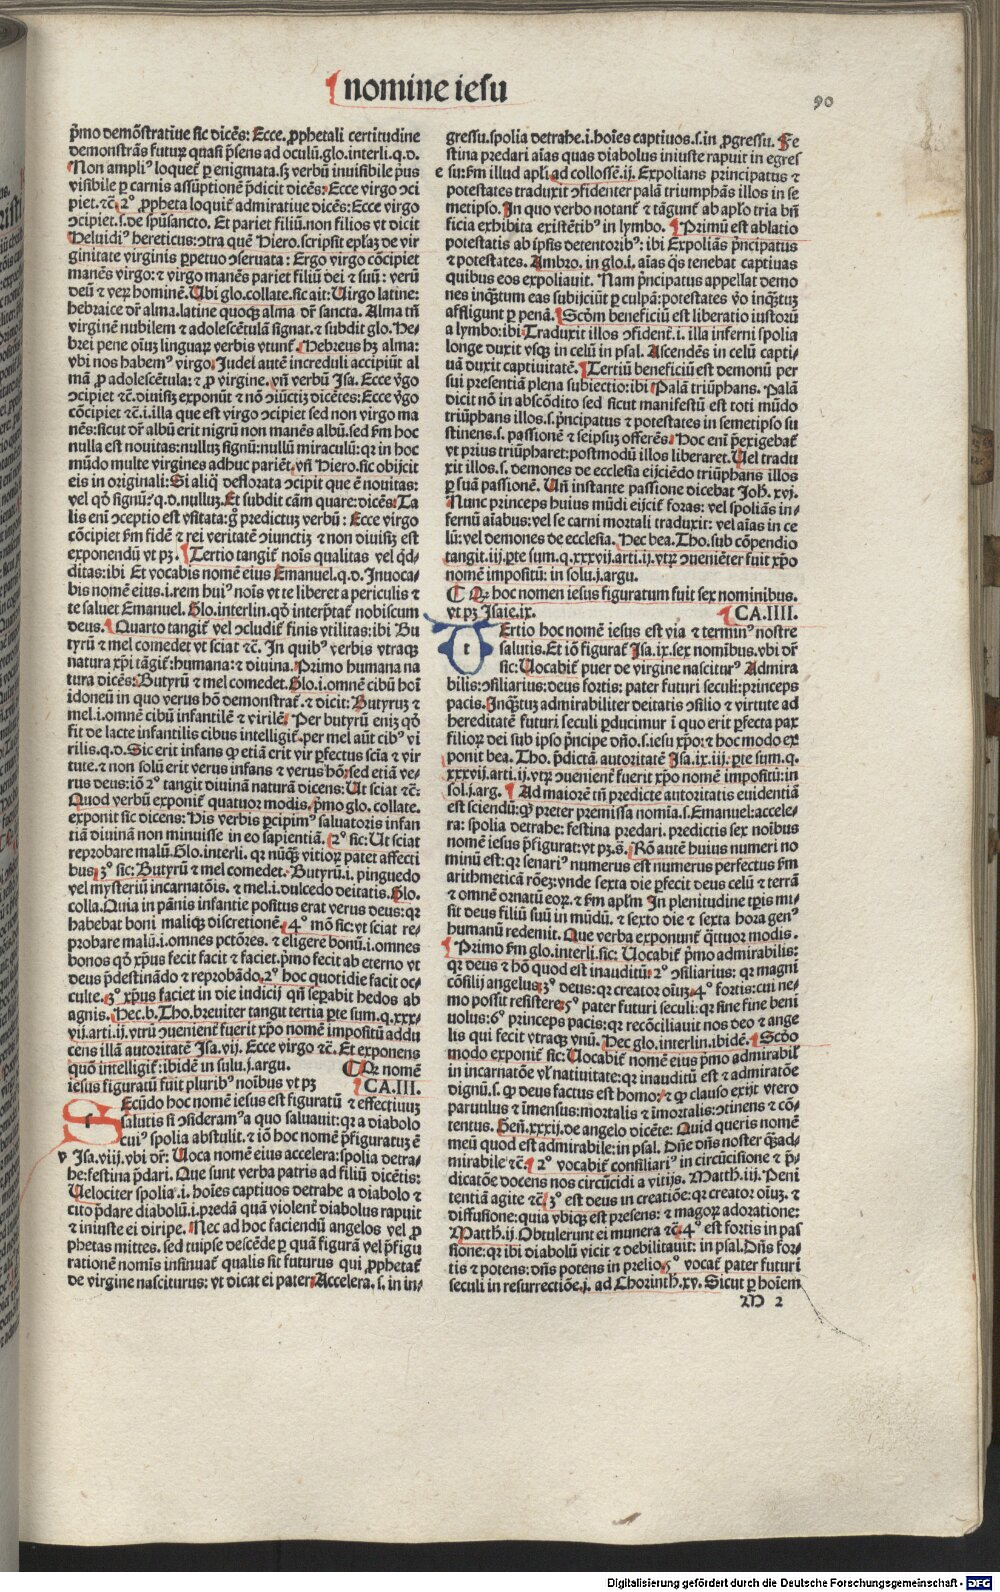 nomine iesu
90
p̄mo demōstratiue sic dicēs: Ecce. ꝓphetali certitudine
demonstrās futurꝝ quasi p̄sens ad oculū.glo.interli.q.d.
Non ampliꝰ loquet̄ ꝑ enigmata.sꝫ verbū inuisibile p̄us
visibile ꝑ carnis assūptionē p̄dicit dicēs: Ecce virgo ↄci
piet.⁊c̄ 2° ꝓpheta loquit̄ admiratiue dicēs: Ecce virgo
ↄcipiet.s.de spūsancto. Et pariet filiū.non filios vt dicit
Heluidiꝰ hereticus:ↄtra quē Hiero.scripsit ep̄laꝫ de vir
ginitate virginis ꝑpetuo ↄseruata: Ergo virgo cōcipiet
manēs virgo: ⁊ virgo manēs pariet filiū dei ⁊ suū: verū
deū ⁊ veꝝ hominē. Ubi glo.collate.sic ait: Uirgo latine:
hebraice dr̄ alma.latine quoqꝫ alma dr̄ sancta. Alma tn̄
virginē nubilem ⁊ adolescētulā signat. ⁊ subdit glo. He-
brei pene oīuꝫ linguaꝝ verbis vtunt̄. Hebreus hꝫ alma:
vbi nos habemꝰ virgo. Judei autē increduli accipiūt al
mā ꝓ adolescētula: ⁊ ꝓ virgine. vn̄ verbū Isa. Ecce v̄go
ↄcipiet ⁊c̄.diuisiꝫ exponūt ⁊ nō ↄiūctiꝫ dicētes: Ecce v̄go
cōcipiet ⁊c̄.i.illa que est virgo ↄcipiet sed non virgo ma
nēs:sicut dr̄ albū erit nigrū non manēs albū.sed ẜm hoc
nulla est nouitas:nulluꝫ signū:nullū miraculū:qr in hoc
mūdo multe virgines adhuc pariēt. vn̄ Hiero.sic obijcit
eis in originali: Si aliq̄ deflorata ↄcipit que ē nouitas:
vel qd̄ signū? q.d.nulluꝫ. Et subdit cām quare: dicēs: Ta
lis eni ↄceptio est vsitata: g̊ predictuꝫ verbū: Ecce virgo
cōcipiet ẜm fidē ⁊ rei veritatē ↄiunctiꝫ ⁊ non diuisiꝫ est
exponendū vt pꝫ. Tertio tangit̄ nois qualitas vel q̄d-
ditas:ibi Et vocabis nomē eius Emanuel.q.d. Inuoca-
bis nomē eius.i.rem huiꝰ nois vt te liberet a periculis ⁊
te saluet Emanuel. Glo.interlin.qd̄ interp̄tat̄ nobiscum
deus. Quarto tangit̄ vel ↄcludit̄ finis vtilitas:ibi Bu
tyrū ⁊ mel comedet vt sciat ⁊c̄. In quibꝰ verbis vtraqꝫ
natura xp̄i tāgit̄:humana:⁊ diuina. Primo humana na
tura dicēs: Butyrū ⁊ mel comedet. Glo.i.omnē cibū hoi
idoneū in quo verus hō demonstrat̄. ⁊ dicit: Butyruꝫ ⁊
mel.i.omnē cibū infantilē ⁊ virilē. Per butyrū eniꝫ qd̄
fit de lacte infantilis cibus intelligit̄.per mel aūt cibꝰ vi
rilis.q.d. Sic erit infans ꝙ etiā erit vir ꝑfectus scīa ⁊ vir
tute.⁊ non solū erit verus infans ⁊ verus hō:sed etiā ve-
rus deus:iō 2° tangit diuinā naturā dicens: Ut sciat ⁊c̄:
Quod verbū exponit̄ quatuor modis. p̄mo glo.collate.
exponit sic dicens: His verbis ꝑcipimꝰ saluatoris infan
tiā diuinā non minuisse in eo sapientiā. 2° sic: Ut sciat
reprobare malū. Glo.interli. qr nūqꝫ vitioꝝ patet affecti
bus 3° sic: Butyrū ⁊ mel comedet. Butyrū.i.pinguedo
vel mysteriū incarnatōis. ⁊ mel.i.dulcedo deitatis. Glo.
colla. Quia in pānis infantie positus erat verus deus:qr
habebat boni maliqꝫ discretionē. 4° mō sic:vt sciat re-
probare malū.i.omnes pctōres. ⁊ eligere bonū.i.omnes
bonos qd̄ xp̄us fecit facit ⁊ faciet.p̄mo fecit ab eterno vt
deus p̄destināndo ⁊ reprobādo.2° hoc quotidie facit oc-
culte. 3° xp̄us faciet in die iudicij qn̄ sepabit hedos ab
agnis. Hec.b. Tho.breuiter tangit tertia ꝑte sum.q.xxx-
vij.arti.ij.vtrū ↄuenient̄ fuerit xp̄o nomē impositū addu
cens illā autoritatē Isa.vij. Ecce virgo ⁊c̄. Et exponens
quō intelligit̄:ibidē in sulu.j.argu. ¶ Qr̄ nomē
iesus figuratū fuit pluribꝰ noibus vt pꝫ CA.III.
SEcūdo hoc nomē iesus est figuratū ⁊ effectiuuꝫ
salutis si ↄsideramꝰ a quo saluauit:qr a diabolo
cuiꝰ spolia abstulit.⁊ iō hoc nomē p̄figuratuꝫ ē
Isa.viij.vbi dr̄: Uoca nomē eius accelera:spolia detra-
he:festina p̄dari. Que sunt verba patris ad filiū dicētis:
Uelociter spolia.i.hoies captiuos detrahe a diabolo ⁊
cito p̄dare diabolū.i.predā quā violent̄ diabolus rapuit
⁊ iniuste ei diripe. Nec ad hoc faciendū angelos vel ꝓ
phetas mittes. sed tuipse descēde ꝑ quā figurā vel p̄figu
rationē nomis insinuat̄ qualis sit futurus qui ꝓphetat̄
de virgine nasciturus: vt dicat ei pater: Accelera.s.in in-
gressu.spolia detrahe.i.hoies captiuos.s.in ꝓgressu. Fe
stina predari aīas quas diabolus iniuste rapuit in egres
su:ẜm illud apl̄i ad collossē.ij. Expolians principatus ⁊
potestates traduxit ↄfidenter palā triumphās illos in se
metipso. In quo verbo notant̄ ⁊ tāgunt̄ ab apl̄o tria bn̄
ficia exhibita existētibꝰ in lymbo. Primū est ablatio
potestatis ab ipsis detentoribꝰ:ibi Expoliās p̄ncipatus
⁊ potestates. Ambro.in glo.i.aīas q̄s tenebat captiuas
quibus eos expoliauit. Nam p̄ncipatus appellat demo
nes inqꝫtum eas subijciūt ꝑ culpā:potestates v̄o inqꝫtuꝫ
affligunt ꝑ penā. Scd̄m beneficiū est liberatio iustorū
a lymbo:ibi Traduxit illos ↄfident̄.i.illa inferni spolia
longe duxit vsqꝫ in celū in psal. Ascendēs in celū capti-
uā duxit captiuitatē. Tertiū beneficiū est demonū per
sui presentiā plena subiectio:ibi Palā triūphans. Palā
dicit nō in abscōdito sed sicut manifestū est toti mūdo
triūphans illos.s.p̄ncipatus ⁊ potestates in semetipso su
stinens.s.passionē ⁊ seipsuꝫ offerēs. Hoc eni p̄exigebat̄
vt prius triūpharet:postmodū illos liberaret. Uel tradu
xit illos.s.demones de ecclesia eijciēdo triūphans illos
ꝑ suā passionē. Un̄ instante passione dicebat Joh.xvj.
Nunc princeps huius mūdi eijcit̄ foras: vel spoliās in-
fernū aīabus:vel se carni mortali traduxit: vel aīas in ce
lū:vel demones de ecclesia. Hec bea. Tho.sub cōpendio
tangit.iij.ꝑte sum.q.xxxvij.arti.ij.vtꝝ ↄueniēter fuit xp̄o
nomē impositū: in solu.j.argu.
¶ Qr̄ hoc nomen iesus figuratum fuit sex nominibus.
vt pꝫ Isaie.ix. CA.IIII.
TErtio hoc nomē iesus est via ⁊ terminꝰ nostre
salutis. Et iō figurat̄ Isa.ix.sex nomībus.vbi dr̄
sic: Uocabit̄ puer de virgine nasciturꝰ Admira
bilis:ↄsiliarius:deus fortis: pater futuri seculi:princeps
pacis. Inqꝫtuꝫ admirabiliter deitatis ↄsilio ⁊ virtute ad
hereditatē futuri seculi ꝑducimur i quo erit ꝑfecta pax
filioꝝ dei sub ipso p̄ncipe dn̄o.s.iesu xp̄o:⁊ hoc modo ex
ponit bea. Tho. p̄dictā autoritatē Isa.ix.iij.ꝑte sum.q.
xxxvij.arti.ij.vtꝝ ↄuenient̄ fuerit xp̄o nomē impositū:in
sol.j.arg. Ad maiorē tn̄ predicte autoritatis euidentiā
est sciendū:ꝙ preter premissa nomīa.s. Emanuel:accele-
ra: spolia detrahe:festina predari. predictis sex noibus
nomē iesus p̄figurat̄:vt pꝫ.s. Rō autē huius numeri no
minū est:qr senariꝰ numerus est numerus perfectus ẜm
arithmeticā rōeꝫ:vnde sexta die ꝑfecit deus celū ⁊ terrā
⁊ omnē ornatū eoꝝ.⁊ ẜm apl̄m In plenitudine tꝑis mi-
sit deus filiū suū in mūdū. ⁊ sexto die ⁊ sexta hora genꝰ
humanū redemit. Que verba exponunt̄ q̄ttuor modis.
Primo ẜm glo.interli.sic: Uocabit̄ p̄mo admirabilis:
qr deus ⁊ hō quod est inauditū. 2° ↄsiliarius:qr magni
cōsilij angelus. 3° deus:qr creator oīuꝫ. 4° fortis:cui ne-
mo possit resistere. 5° pater futuri seculi:qr sine fine beni
uolus: 6° princeps pacis:qr recōciliauit nos deo ⁊ ange
lis qui fecit vtraqꝫ vnū. Hec glo.interlin.ibidē. Scd̄o
modo exponit̄ sic: Uocabit̄ nomē eius p̄mo admirabil̄
in incarnatōe vl̄ natiuitate:qr inauditū est ⁊ admiratōe
dignū.s.ꝙ deus factus est homo:⁊ ꝙ clauso exijt vtero
paruulus ⁊ īmensus:mortalis ⁊ īmortalis:ↄtinens ⁊ cō-
tentus. Gen̄.xxxij.de angelo dicēte: Quid queris nomē
meū quod est admirabile:in psal. Dn̄e dn̄s noster qꝫad-
mirabile ⁊c̄. 2° vocabit̄ consiliariꝰ in circūcisione ⁊ p̄-
dicatōe docens nos circūcidi a vitijs. Matth.iij. Peni
tentiā agite ⁊c̄ 3° est deus in creatiōe:qr creator oīuꝫ.⁊
diffusione:quia vbiqꝫ est presens: ⁊ magoꝝ adoratione:
Matth.ij. Obtulerunt ei munera ⁊c̄ 4° est fortis in pas
sione:qr ibi diabolū vicit ⁊ debilitauit: in psal. Dn̄s for-
tis ⁊ potens:dn̄s potens in prelio. 5° vocat̄ pater futuri
seculi in resurrectiōe.j.ad Chorinth.xv. Sicut ꝑ hoiem
M 2
Digitalisierung gefördert durch die Deutsche Forschungsgemeinschaft - DFG